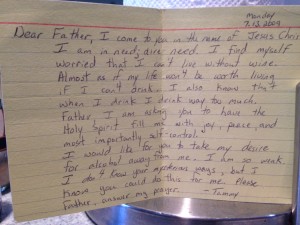 Monday
7.13.2009
Dear Father, I come to you in the name of Jesus Christ
I am in need, dire need. I find myself
worried that I can't live without wine.
Almost as if my life won't be worth living
if I can't drink. I also know that
when I drink I drink way too much.
Father, I am asking you to have the
Holy Spirit fill me with joy, peace, and
most importantly self-control.
I would like for you to take my desire
for alcohol away from me. I am so weak.
I don't know your mysterious ways, but I
know you could do this for me. Please
Father, answer my prayer.